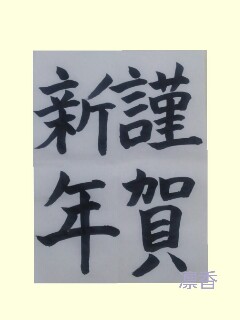 謹賀
新年
凛香